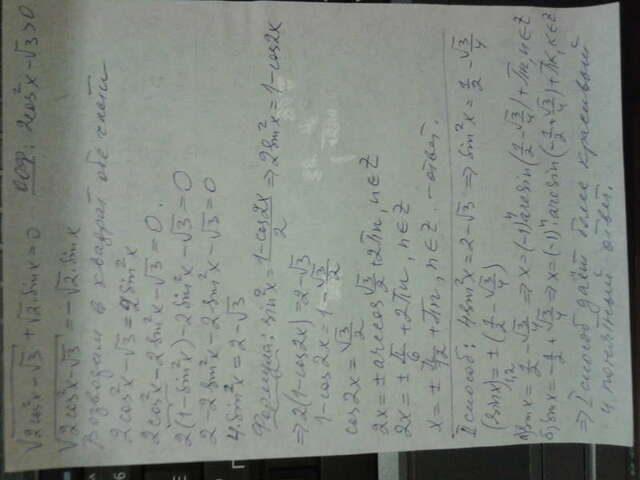 √(2cos²x-√3) + √2·sinx = 0 обл: 2cos²x-√3 ≥ 0
√(2cos²x-√3) = -√2 sinx
Возводим в квадрат обе части
2cos²x-√3 = 2sin²x
2cos²x-2sin²x-√3 = 0.
2(1-sin²x)-2sin²x-√3 = 0
2-2sin²x-2sin²x-√3 = 0
4sin²x = 2-√3
Формула: sin²x = (1-cos2x)/2 ⇒ 2sin²x = 1-cos2x
⇒ 2(1-cos2x) = 2-√3
1-cos2x = 1-√3/2
cos2x = √3/2
2x = ± arccos √3/2 + 2πn, n∈Z
2x = ± π/6 + 2πn, n∈Z
x = ± π/12 + πn, n∈Z. - ответ.
II способ: 4sin²x = 2-√3 ⇒ sin²x = 1/2 - √3/4
(sinx)₁,₂ = ±(1/2 - √3/4)
а) sinx = 1/2 - √3/4 ⇒ x = (-1)ⁿ arcsin(1/2 - √3/4) + πn, n∈Z
б) sinx = -1/2 + √3/4 ⇒ x = (-1)ⁿ arcsin(-1/2 + √3/4) + πk, k∈Z
⇒ I способ даёт более красивый
и понятный ответ.